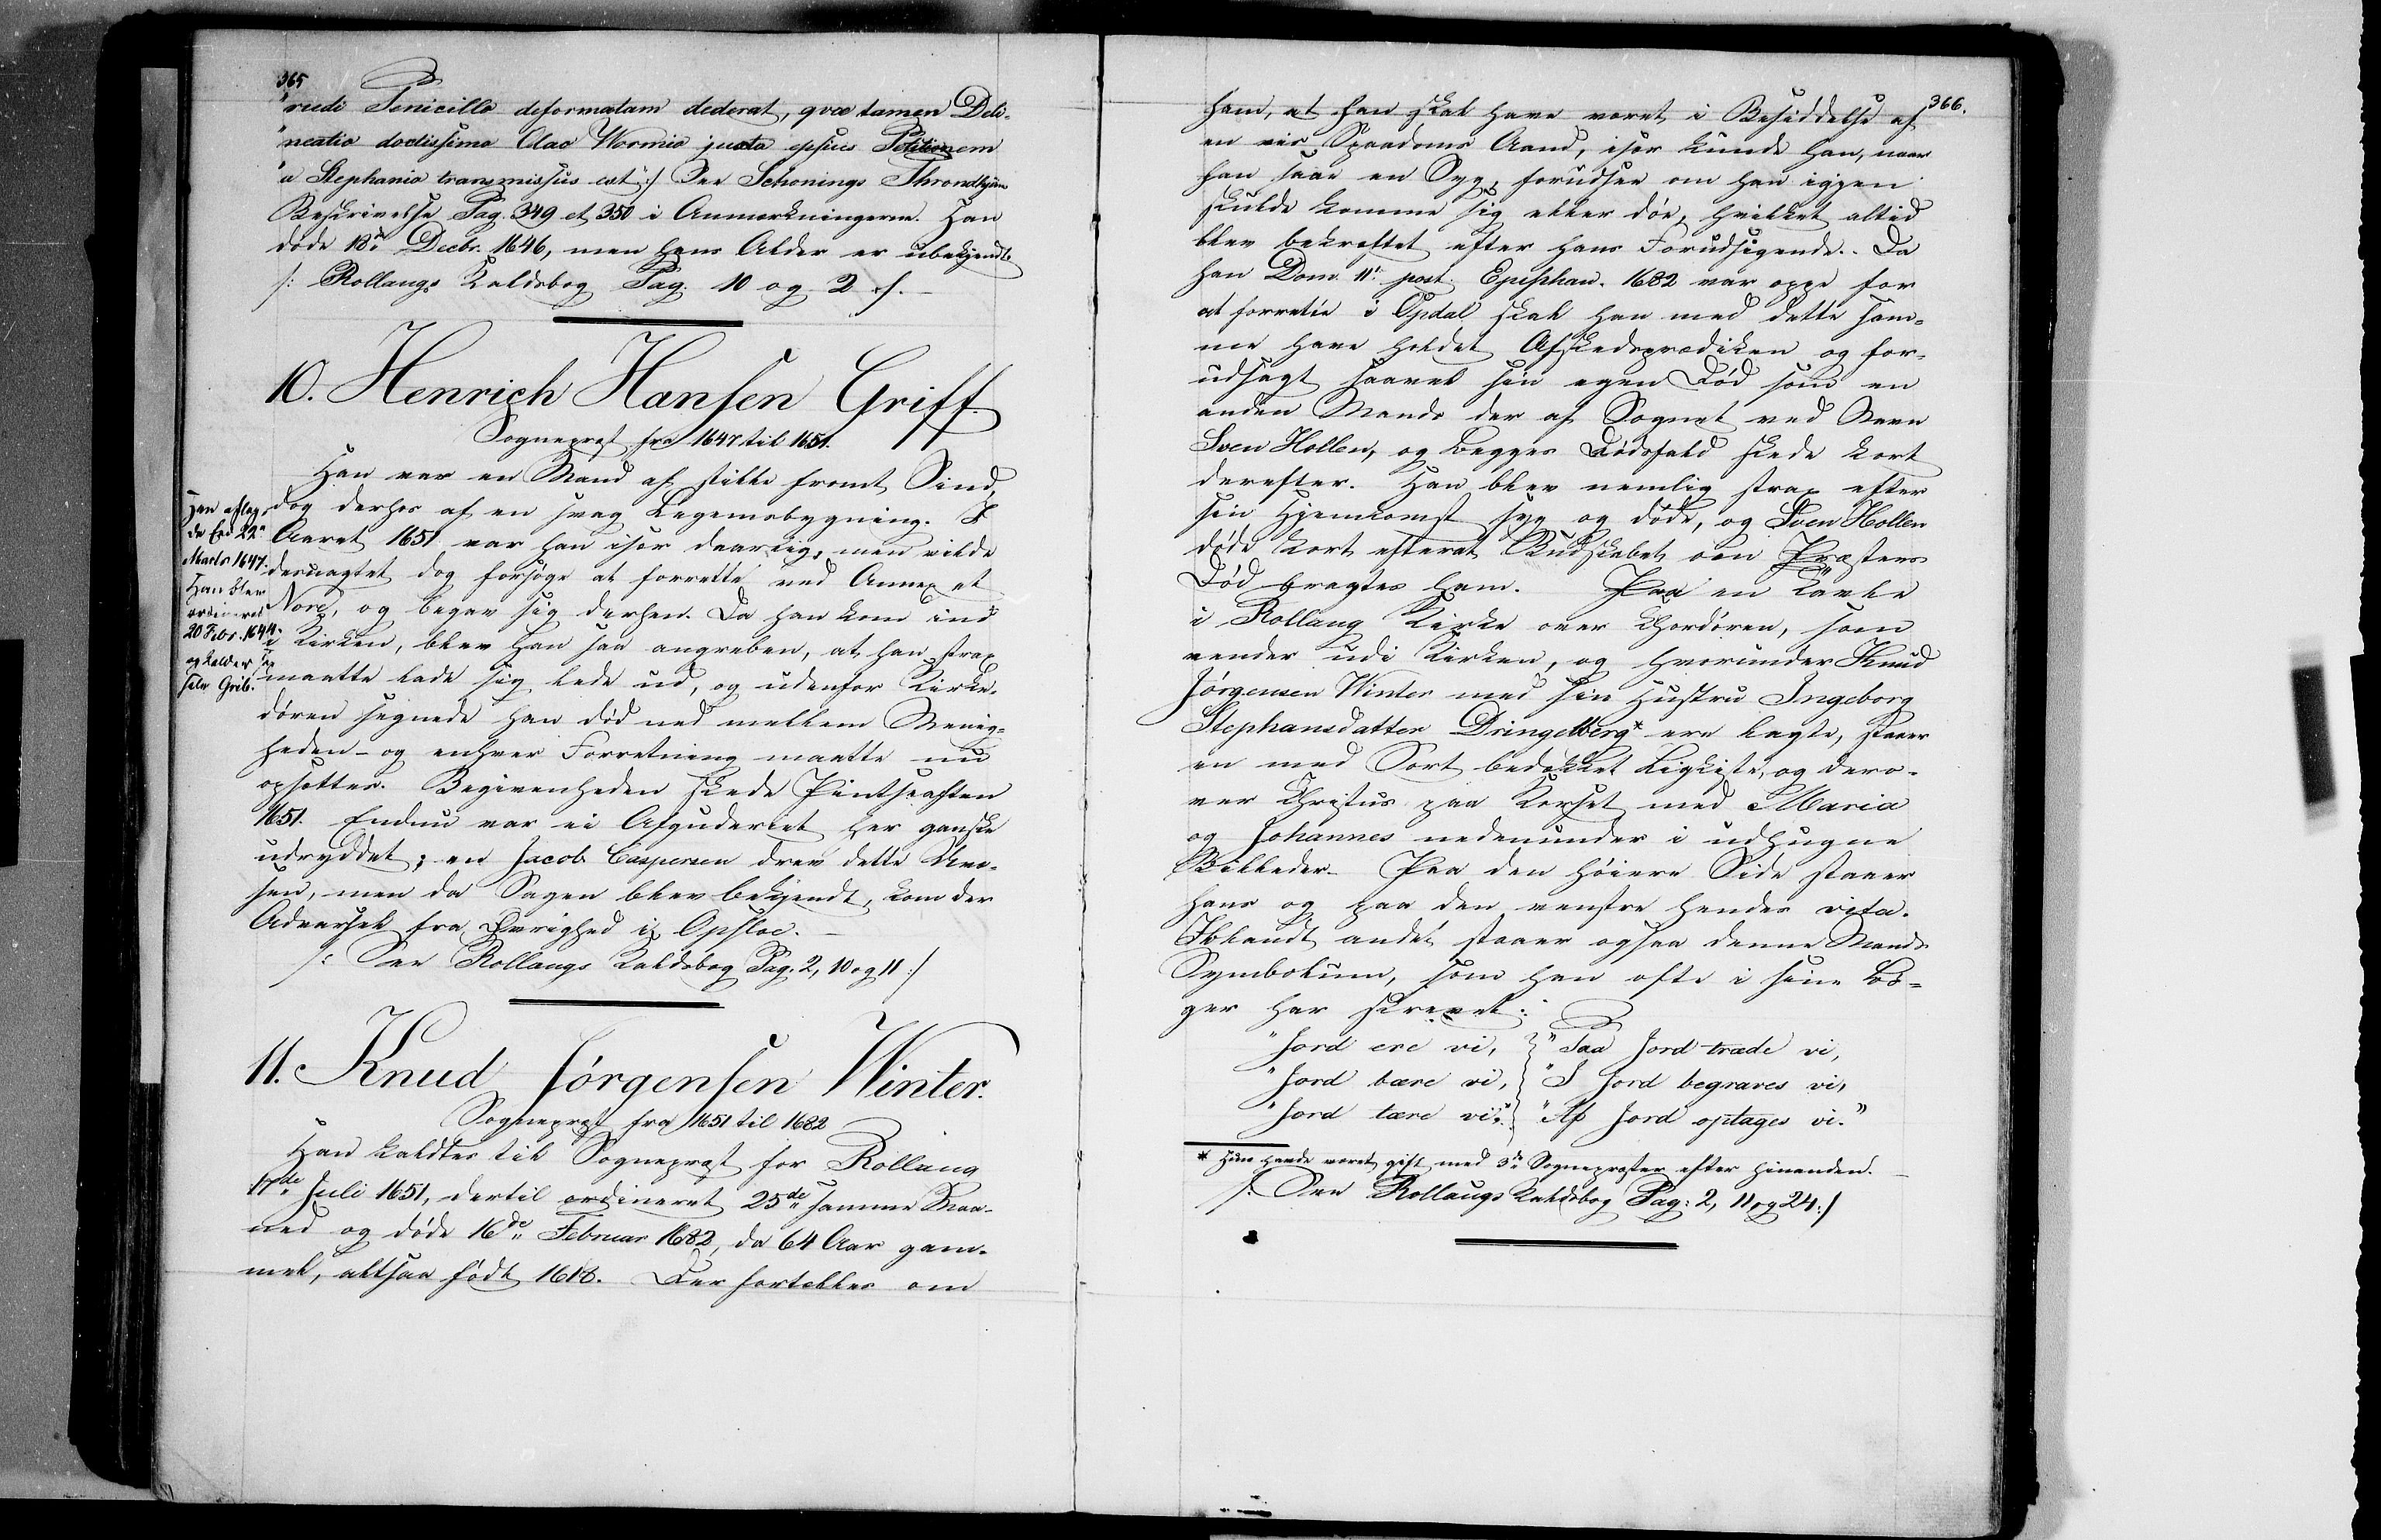 365
"rudi Penicillo deformatam dederat, qvæ tamen Deli-
"neatio doctissimo Olao Wormio juxta epsius Petitionem
"a Stephanio transmissus est":/ See Schonings Throndhjems
Beskrivelse Pag. 349 et 350 i Anmærkningerne. Han
døde 18de Decbr. 1646, men hans Alder er ubekjendt.
/: Rollaugs Kaldsbog Pag. 10 og 2 :/. —
10. Henrich Hansen Griff.
Sognepræst fra 1647 til 1651.
Han var en Mand af stille fromt Sind,
dog derhos af en svag Legemsbygning. I
Aaret 1651 var han især daarlig, men vilde
desuagtet dog forsøge at forrette ved Annex et
Nore, og begav sig derhen. Da han kom ind
i Kirken, blev han saa angreben, at han strax
maatte lade sig lede ud, og udenfor Kirke-
døren segnede han død ned mellem Menig-
heden – og enhver Forretning maatte nu
opsættes. Begivenheden skede Pintseaften
1651. Endnu var ei Afguderiet her ganske
udryddet; en Jacob Caspersen drev dette Uvæ-
sen, men da Sagen blev bekjendt, kom der
Advarsel fra Øvrighed i Opsloe. —
/: See Rollaugs Kaldsbog Pag. 2, 10 og 11 :/
Han aflag-
de Eed 22de
Marts 1647.
Han blev
ordineret
20 Febr. 1644.
og kalder sig
selv Grib.
11. Knud Jørgensen Winter.
Sognepræst fra 1651 til 1682
Han kaldtes til Sognepræst for Rollaug
17de Juli 1651, dertil ordineret 25de samme Maa-
ned og døde 16de Februar 1682, da 64 Aar gam-
mel, altsaa født 1618. Der fortælles om
366.
ham, at han skal have været i Besiddelse af
en vis Spaadoms Aand, især kunde han, naar
han saae en Syg, forudsee om han iggjen
skulde komme sig eller døe, hvilket altid
blev bekræftet efter hans Forudsigende. Da
han Dom. 11te post. Epiphan. 1682 var oppe for
at forrette i Opdal skal han med dette sam-
me have holdet Afskedsprædiken og for-
udsagt saavel sin egen Død som en
anden Mands der af Sognet ved Navn
Sven Hollen, og begges Dødsfald skede kort
derefter. Han blev nemlig strax efter
sin Hjemkomst syg og døde, og Sven Hollen
døde kort efterat Budskabet om Præstens
Død bragtes ham. Paa en Tavle
i Rollaug Kirke over Chordøren, som
vender udi Kirken, og hvorunder Knud
Jørgensen Winter med sin Hustru Ingeborg
Stephansdatter Dringelberg* ere lagte, staaer
en med Sort bedækket Ligkiste, og dero-
ver Christus paa Korset med Maria
og Johannes nedenunder i udhugne
Billeder. Paa den høiere Side staaer
hans og paa den venstre hendes vita.
Iblandt andet staaer ogsaa denne Mands
Symbolum, som han ofte i sine Bø-
ger har skrevet:
"Jord ere vi, "Paa Jord træde vi,
"Jord bære vi, "I Jord begraves vi,
"Jord tære vi". "Af Jord optages vi."
* Hun havde været gift med 3de Sognepræster efter hinanden. —
/: See Rollaugs Kaldsbog Pag: 2, 11 og 24 :/